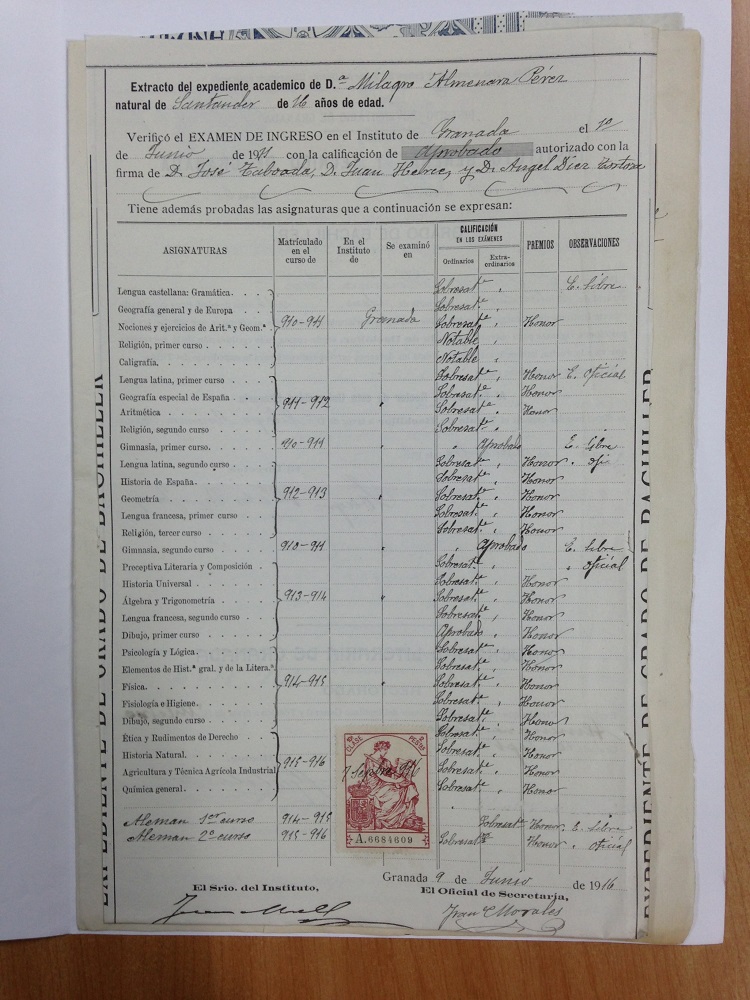 Extracto del expediente academico de D.ª Milagro Almenara Pérez
natural de Santander de 16 años de edad.
Verificó el EXAMEN DE INGRESO en el Instituto de Granada el
de Junio de 1911 con la calificación de Aprobado autorizado con la
firma de D. José Taboada, D. Juan y D. Angel Diez Tortosa
Tiene además probadas las asignaturas que a continuación se expresan:
ASIGNATURAS Matriculado en el curso de En el Instituto de Se examinó en CALIFICACIÓN EN LOS EXÁMENES Ordinarios Extraordinarios PREMIOS OBSERVACIONES
Lengua castellana: Gramática. Sobresate E. libre
Geografía general y de Europa Sobresate
Nociones y ejercicios de Arit.ª y Geom.ª 910-911 Granada Sobresate Honor
Religión, primer curso Notable
Caligrafía. Notable
Lengua latina, primer curso Sobresate Honor E. Oficial
Geografía especial de España Sobresate Honor
Aritmética 911-912 Sobresate Honor
Religión, segundo curso Sobresate
Gimnasia, primer curso. 910-911 Aprobado E. libre
Lengua latina, segundo curso Sobresate Honor ofi
Historia de España. Sobresate Honor
Geometría 912-913 Sobresate Honor
Lengua francesa, primer curso Sobresate Honor
Religión, tercer curso Sobresate Honor
Gimnasia, segundo curso 910-911 Aprobado E. libre
Preceptiva Literaria y Composición Sobresate oficial
Historia Universal Sobresate Honor
Álgebra y Trigonometría 913-914 Sobresate Honor
Lengua francesa, segundo curso Sobresate Honor
Dibujo, primer curso Aprobado Honor
Psicología y Lógica. Sobresate Honor
Elementos de Hist.ª gral. y de la Litera.ª Sobresate Honor
Física. 914-915 Sobresate Honor
Fisiología e Higiene. Sobresate Honor
Dibujo, segundo curso Sobresate Honor
Ética y Rudimentos de Derecho Sobresate Honor
Historia Natural. Sobresate Honor
Agricultura y Técnica Agrícola Industrial 915-916 Sobresate Honor
Química general. Sobresate Honor
Aleman 1er curso 914-915 Sobresate Honor E. libre
Aleman 2º curso 915-916 Sobresate Honor oficial
CLASE
916
A.6684609
Granada 9 de Junio de 1916
El Srio. del Instituto, El Oficial de Secretaría,
Morales
EXPEDIENTE DE GRADO DE BACHILLER
EXPEDIENTE DE GRADO DE BACHILLER